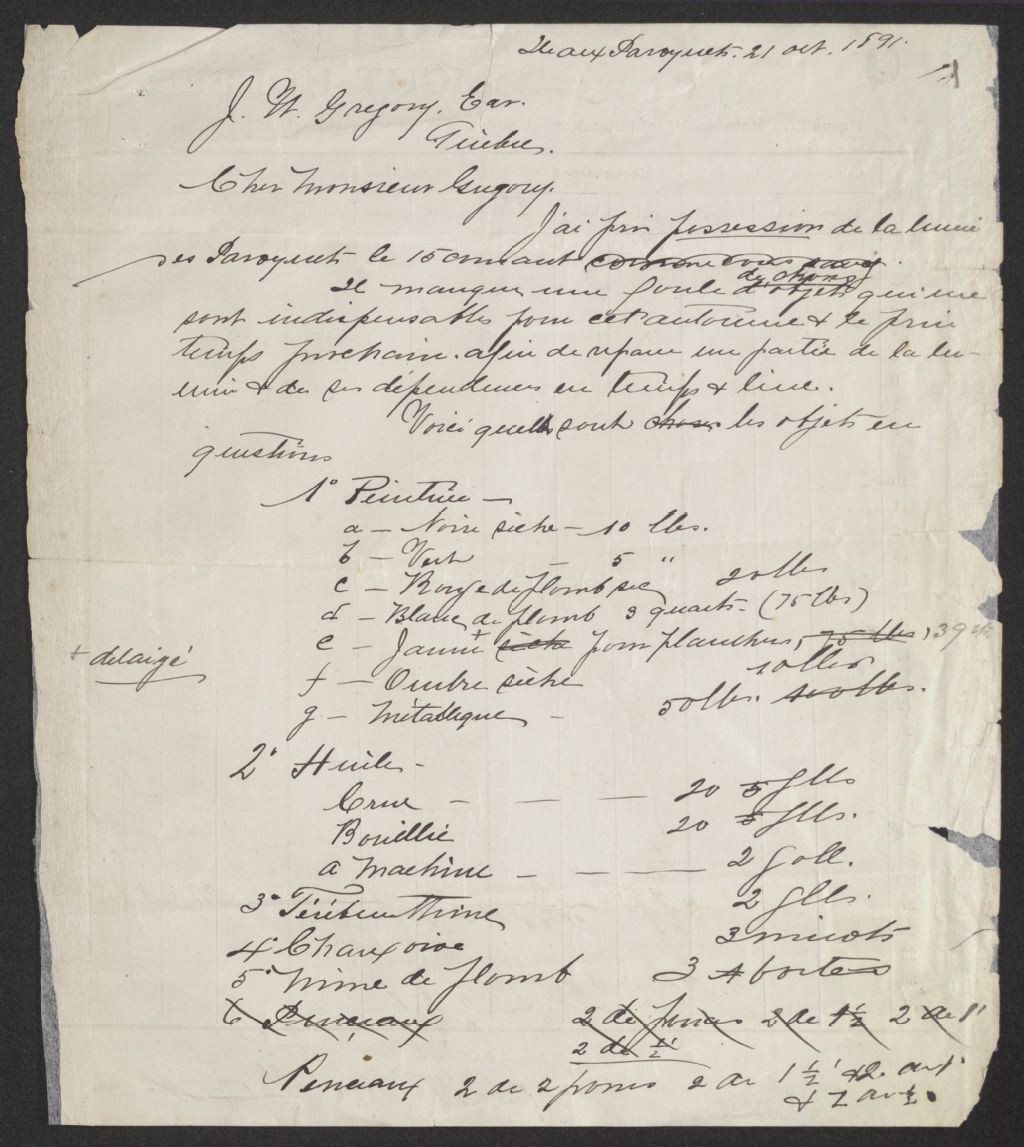 Ile aux Perroquets. 21 oct. 1891.
J. U. Gregory. Ecr.
Québec.
Cher Monsieur Gregory.
J'ai pris possession de la lumière
des Perroquets le 15 courant comme vous savez.
Il manque une foule de choses d'objets qui me
sont indispensables pour cet automne & le prin
temps prochain. afin de réparer une partie de la lu-
mière & de ses dépendences en temps & lieu.
Voici quels sont choses les objets en
questions
1° Peinture —
a — Noire sèche — 10 lbs.
b — Vert — 5 "
c — Rouge de plomb sec 20 lbs
d — Blanc de plomb 3 quarts - (75 lbs)
e — Jaune + sèche pour planchers, 75 lbs,
+ délaigé
f — Ombre sèche 10 lbs
g — Métallique — 50 lbs. 100 lbs.
2° Huile -
Crue — — — 20 5 glls
Bouillie 20 5 glls.
a machine — — — 2 gall.
3° Térébenthine 2 glls.
4° Chaux vive 3 minots
5° Mine de plomb 3 4 boites
6 Penceaux 2 de pouces 2 de 1½ 2 de 1'
2 de ½'
Penceaux 2 de 2 pouces 2 de 1½' & 2 de 1'
& 2 de ½.